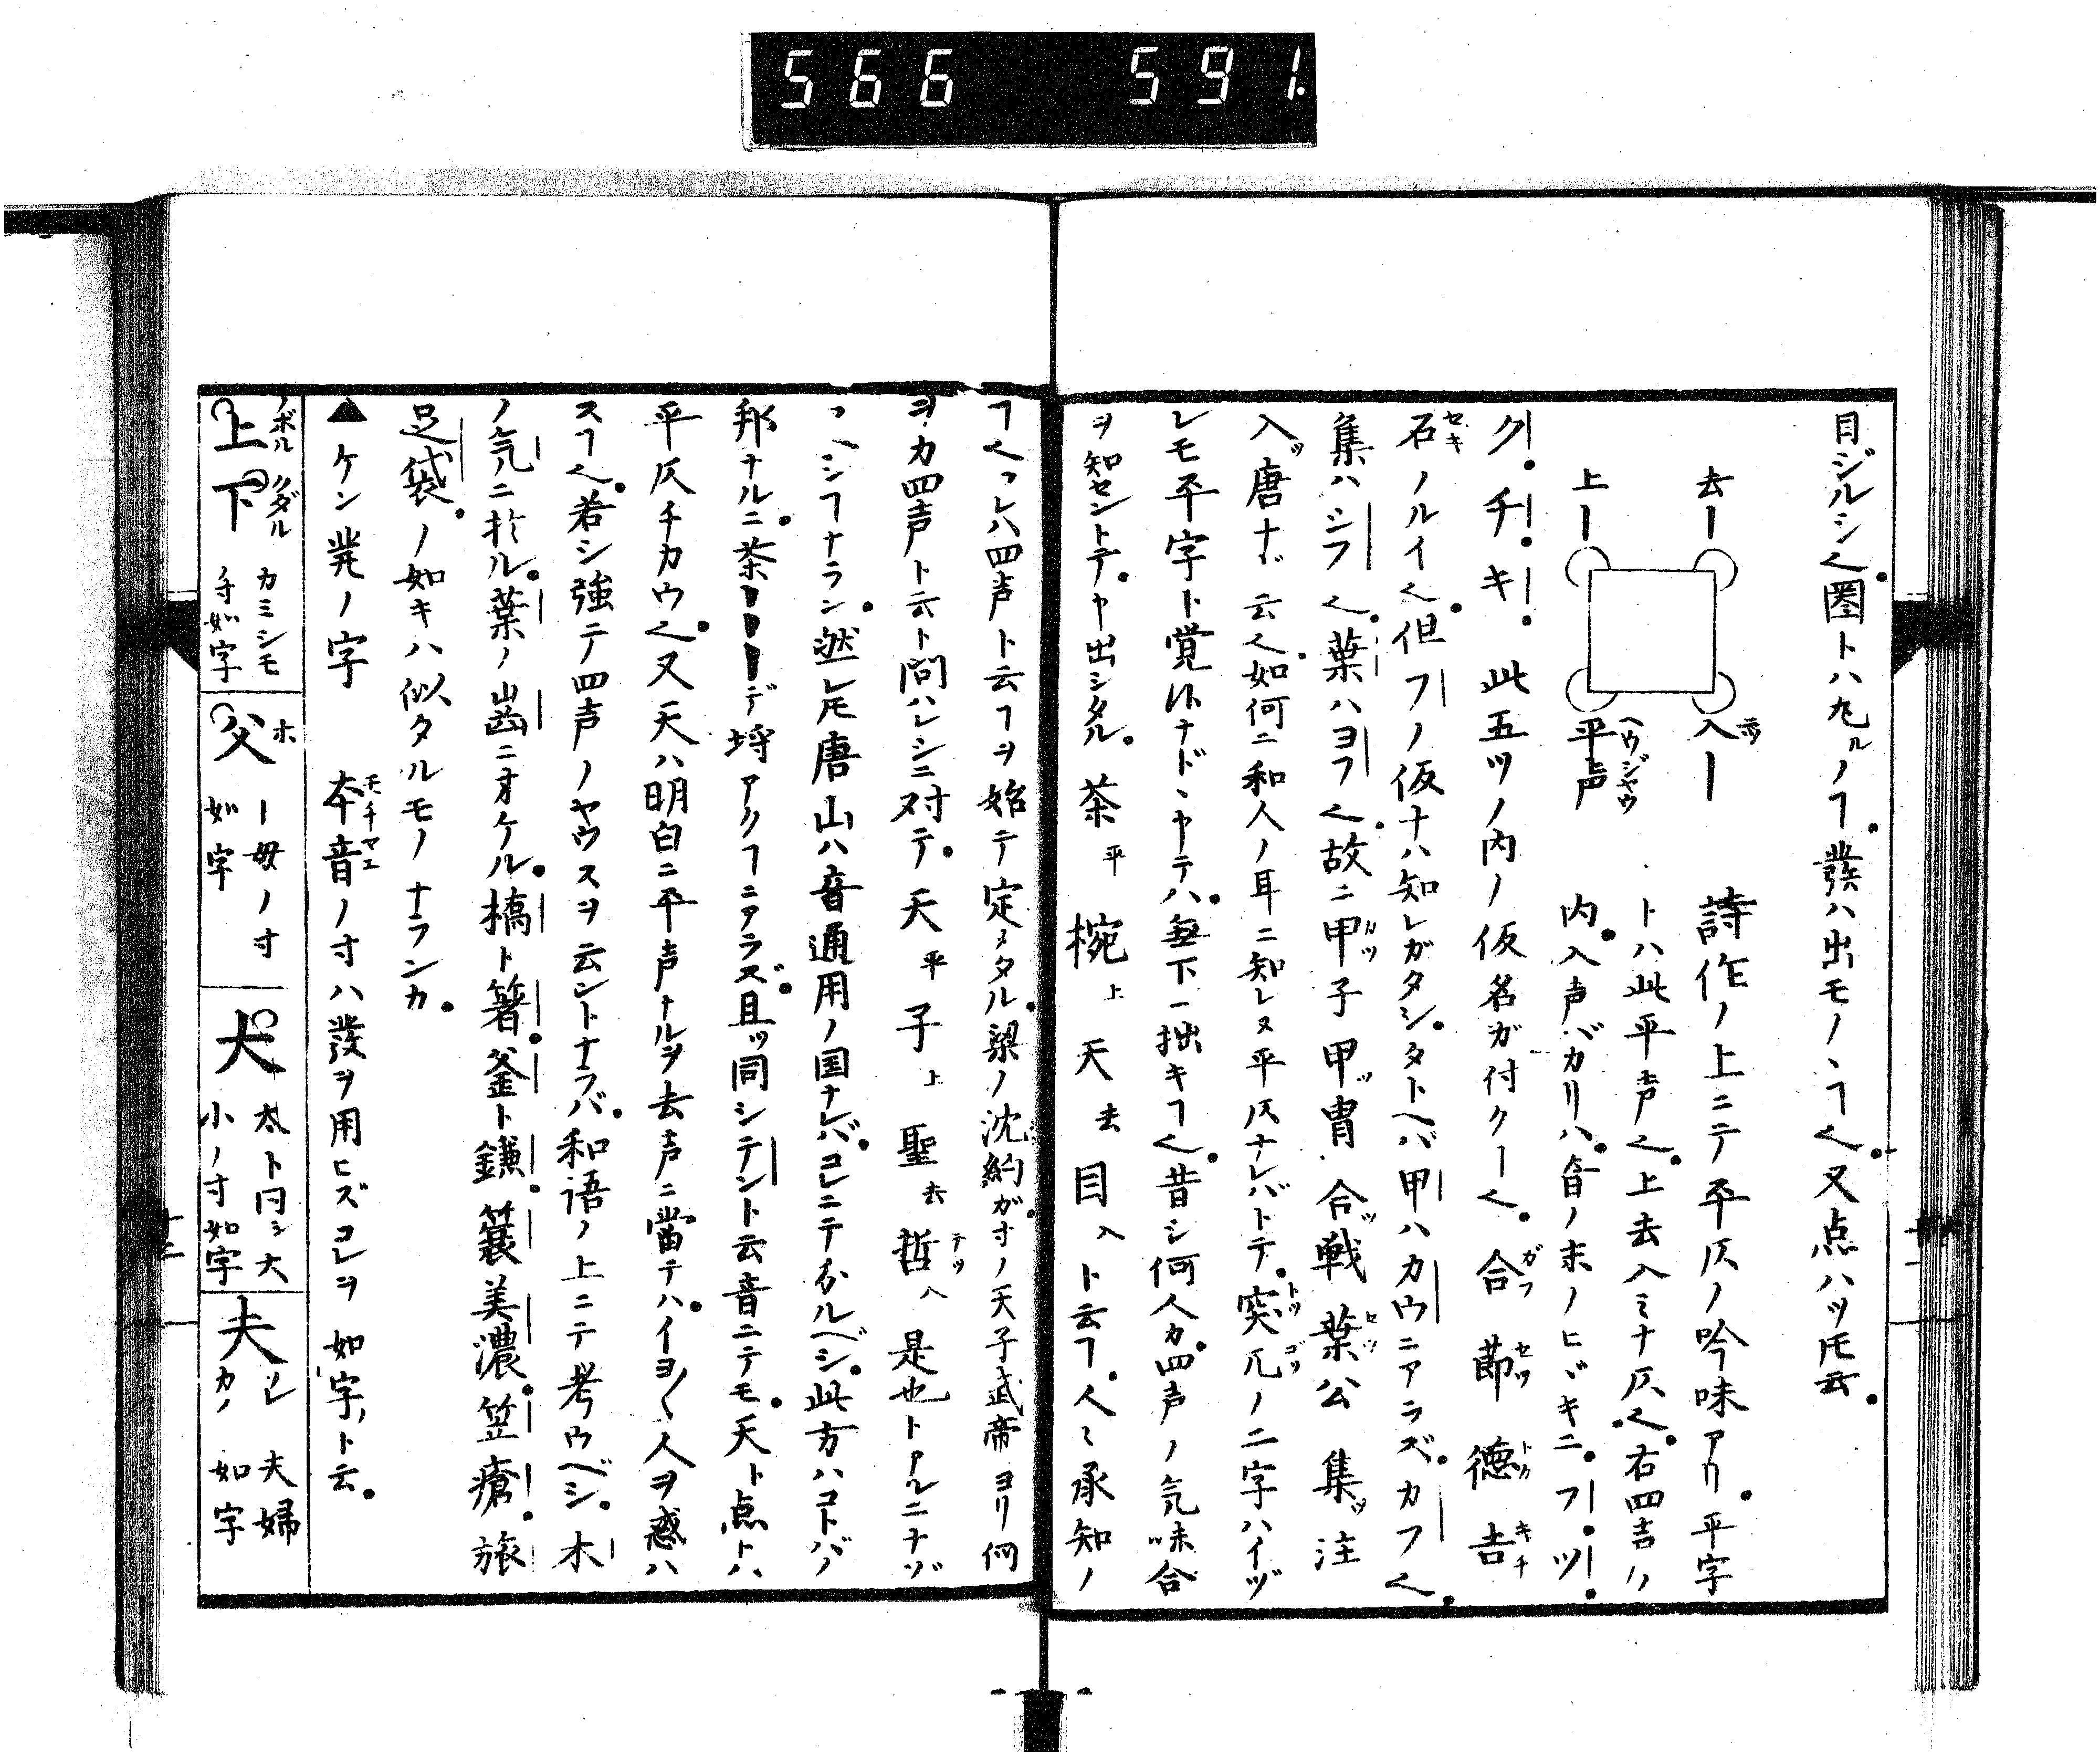 566 591.
目ジルシ也。圏トハ丸ルノヿ。發ハ出モノヽヿ也。又点ハツ𪜈云。
去ー 入ー 詩作ノ上ニテ平仄ノ吟味アリ。平字
上ー 平声 トハ此平声也。上去入ミナ仄也。右四声ノ
内。入声バカリハ。音ノ末ノヒヾキニ。フ。ツ。
ク。チ。キ。此五ツノ内ノ仮名ガ付クー也。合 節 徳 吉
石ノルイ也。但フノ仮ナハ知レガタシ。タトヘバ甲ハカウニアラズ。カフ也。
集ハシフ也。葉ハヨフ也。故ニ甲子甲冑合戦葉公集注
入唐ナド云也。如何ニ和人ノ耳ニ知レヌ平仄ナレバトテ。突兀ノ二字ハイヅ
レモ平字ト覚ルナド、ヤテハ。無下ニ拙キヿ也。昔シ何人カ。四声ノ気味合
ヲ知セントテ。ヤ出シタル。茶平 椀上 天去 目入ト云ヿ。人〻承知ノ
ヿ也。コレハ四声ト云ヿヲ始テ定メタル。梁ノ沈約ガ。寸ノ天子武帝ヨリ何
ヲカ四声ト云ト問ハレシニ対テ。天平 子上 聖去 哲入 是也トアルニナヅ
ヘシヿナラン。然レ𪜈唐山ハ音通用ノ国ナレバ。コレニテ分ルベシ。此方ハコトバノ
邦ナルニ。茶ーーーデ埒アクヿニアラズ。且ツ同シテントニ云音ニテモ。天ト点トハ
平仄チカウ也。又天ハ明白ニ平声ナルヲ去声ニ當テハ。イヨ〳〵人ヲ惑ハ
スヿ也。若シ強テ四声ノヤウスヲ云ントナラバ。和語ノ上ニテ考ウベシ。木
ノ気ニ於ル。葉ノ歯ニオケル。橋ト箸。釜ト鎌。簑美濃。笠瘡。旅
足袋。ノ如キハ似タルモノナランカ。
▲ケン発ノ字 本音ノ寸ハ發ヲ用ヒズコレヲ如字ノト云。
上 下 ノボル クダル カミシモ 寸如字
父 ホ ー母ノ寸 如字
犬 太ト同シ大 小ノ寸如字
夫 ソレ カノ 夫婦 如字